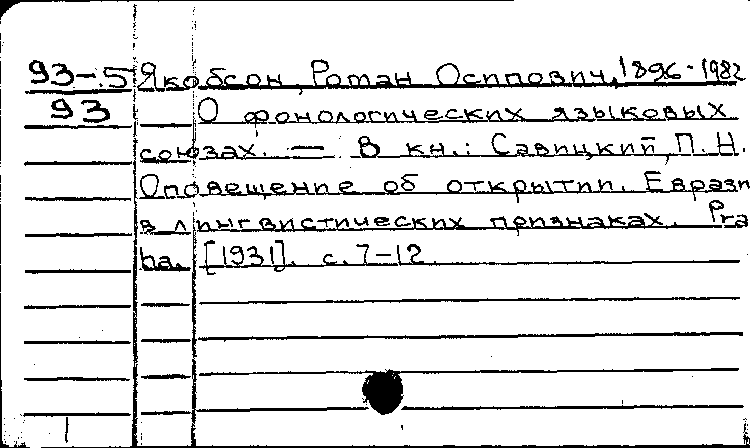 93-5 Якобсон, Роман Осипович, 1896-1982
93 О фонологических языковых
союзах. — В кн.: Савицкий, П. Н.
Оповещение об открытии. Еврази
в лингвистических признаках. Pra
ha. [1931]. с. 7-12.